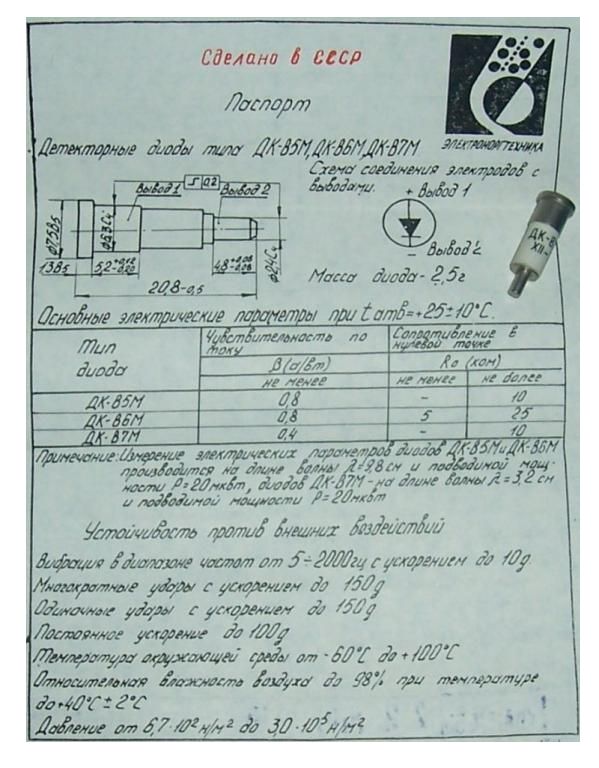 Сделано в СССР
Паспорт
ЭЛЕКТРОНОРГТЕХНИКА
Детекторные диоды типа ДК-В5М, ДК-В6М, ДК-В7М
Схема соединения электродов с
выводами.
+ Вывод 1
- Вывод 2
Вывод 1
0.2
Вывод 2
ф7,5В5
ф2,4С4
1,3В5
5,2 +0,12 -0,20
4,8
20,8-0,5
Масса диода - 2,5г
ДК-В
XII-
Основные электрические параметры при t амв=+25±10°С.
Тип диода
Чувствительность по току
Сопротивление в нулевой точке
β (а/вт)
Rо (ком)
не менее
не менее
не более
ДК-В5М 0,8 - 10
ДК-В6М 0,8 5 25
ДК-В7М 0,4 - 10
Примечание: Измерение электрических параметров диодов ДК-В5М и ДК-В6М
производится на длине волны λ=9,8 см и подводимой мощ-
ности Р=20мквт, диодов ДК-В7М - на длине волны λ=3,2 см
и подводимой мощности Р=20мквт
Устойчивость против внешних воздействий
Вибрация в диапазоне частот от 5÷2000гц с ускорением до 10g.
Многократные удары с ускорением до 150g
Одиночные удары с ускорением до 150g
Постоянное ускорение до 100g
Температура окружающей среды от -60°С до +100°С
Относительная влажность воздуха до 98% при температуре
до +40°С ± 2°С
Давление от 6,7·10² н/м² до 3,0·10⁵ н/м²